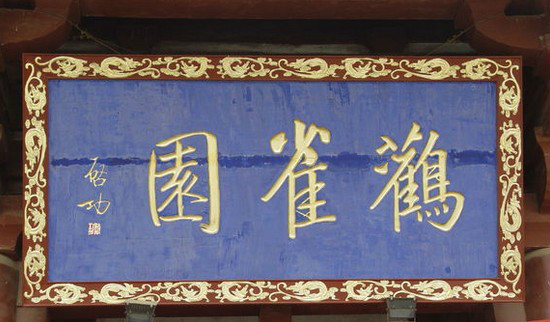 鸛雀園
启功